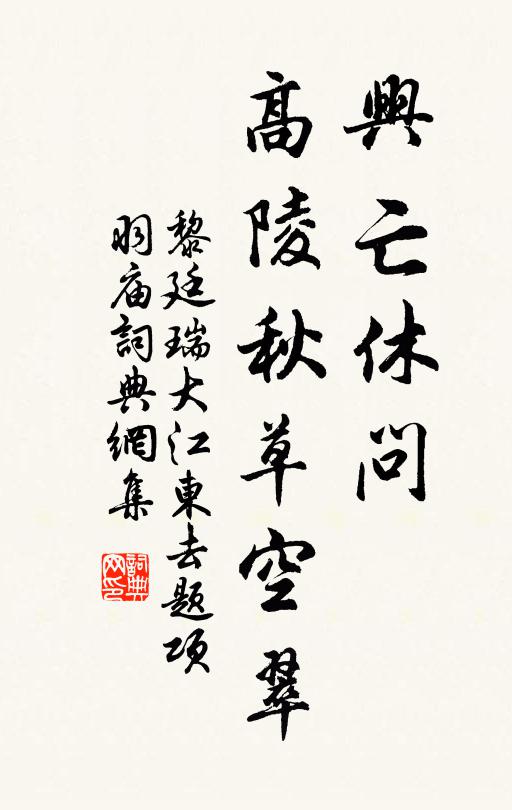 興亡休問
高陵秋草空翠
黎廷瑞大江東去题項
羽庙詞典網集
詞典网印